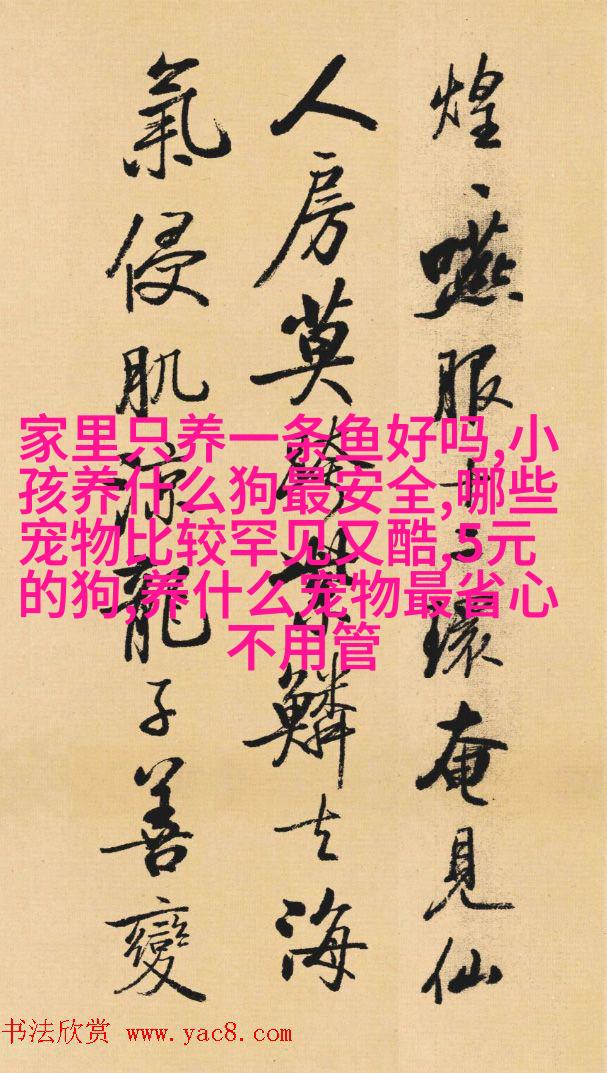 煌、嚥服十二環奄見仙
人房莫跨紫鱗去海
氣侵肌涼龍子善變
家里只养一条鱼好吗,小
孩养什么狗最安全,哪些
宠物比较罕见又酷,5元
的狗,养什么宠物最省心
不用管
书法欣赏 www.yac8.com